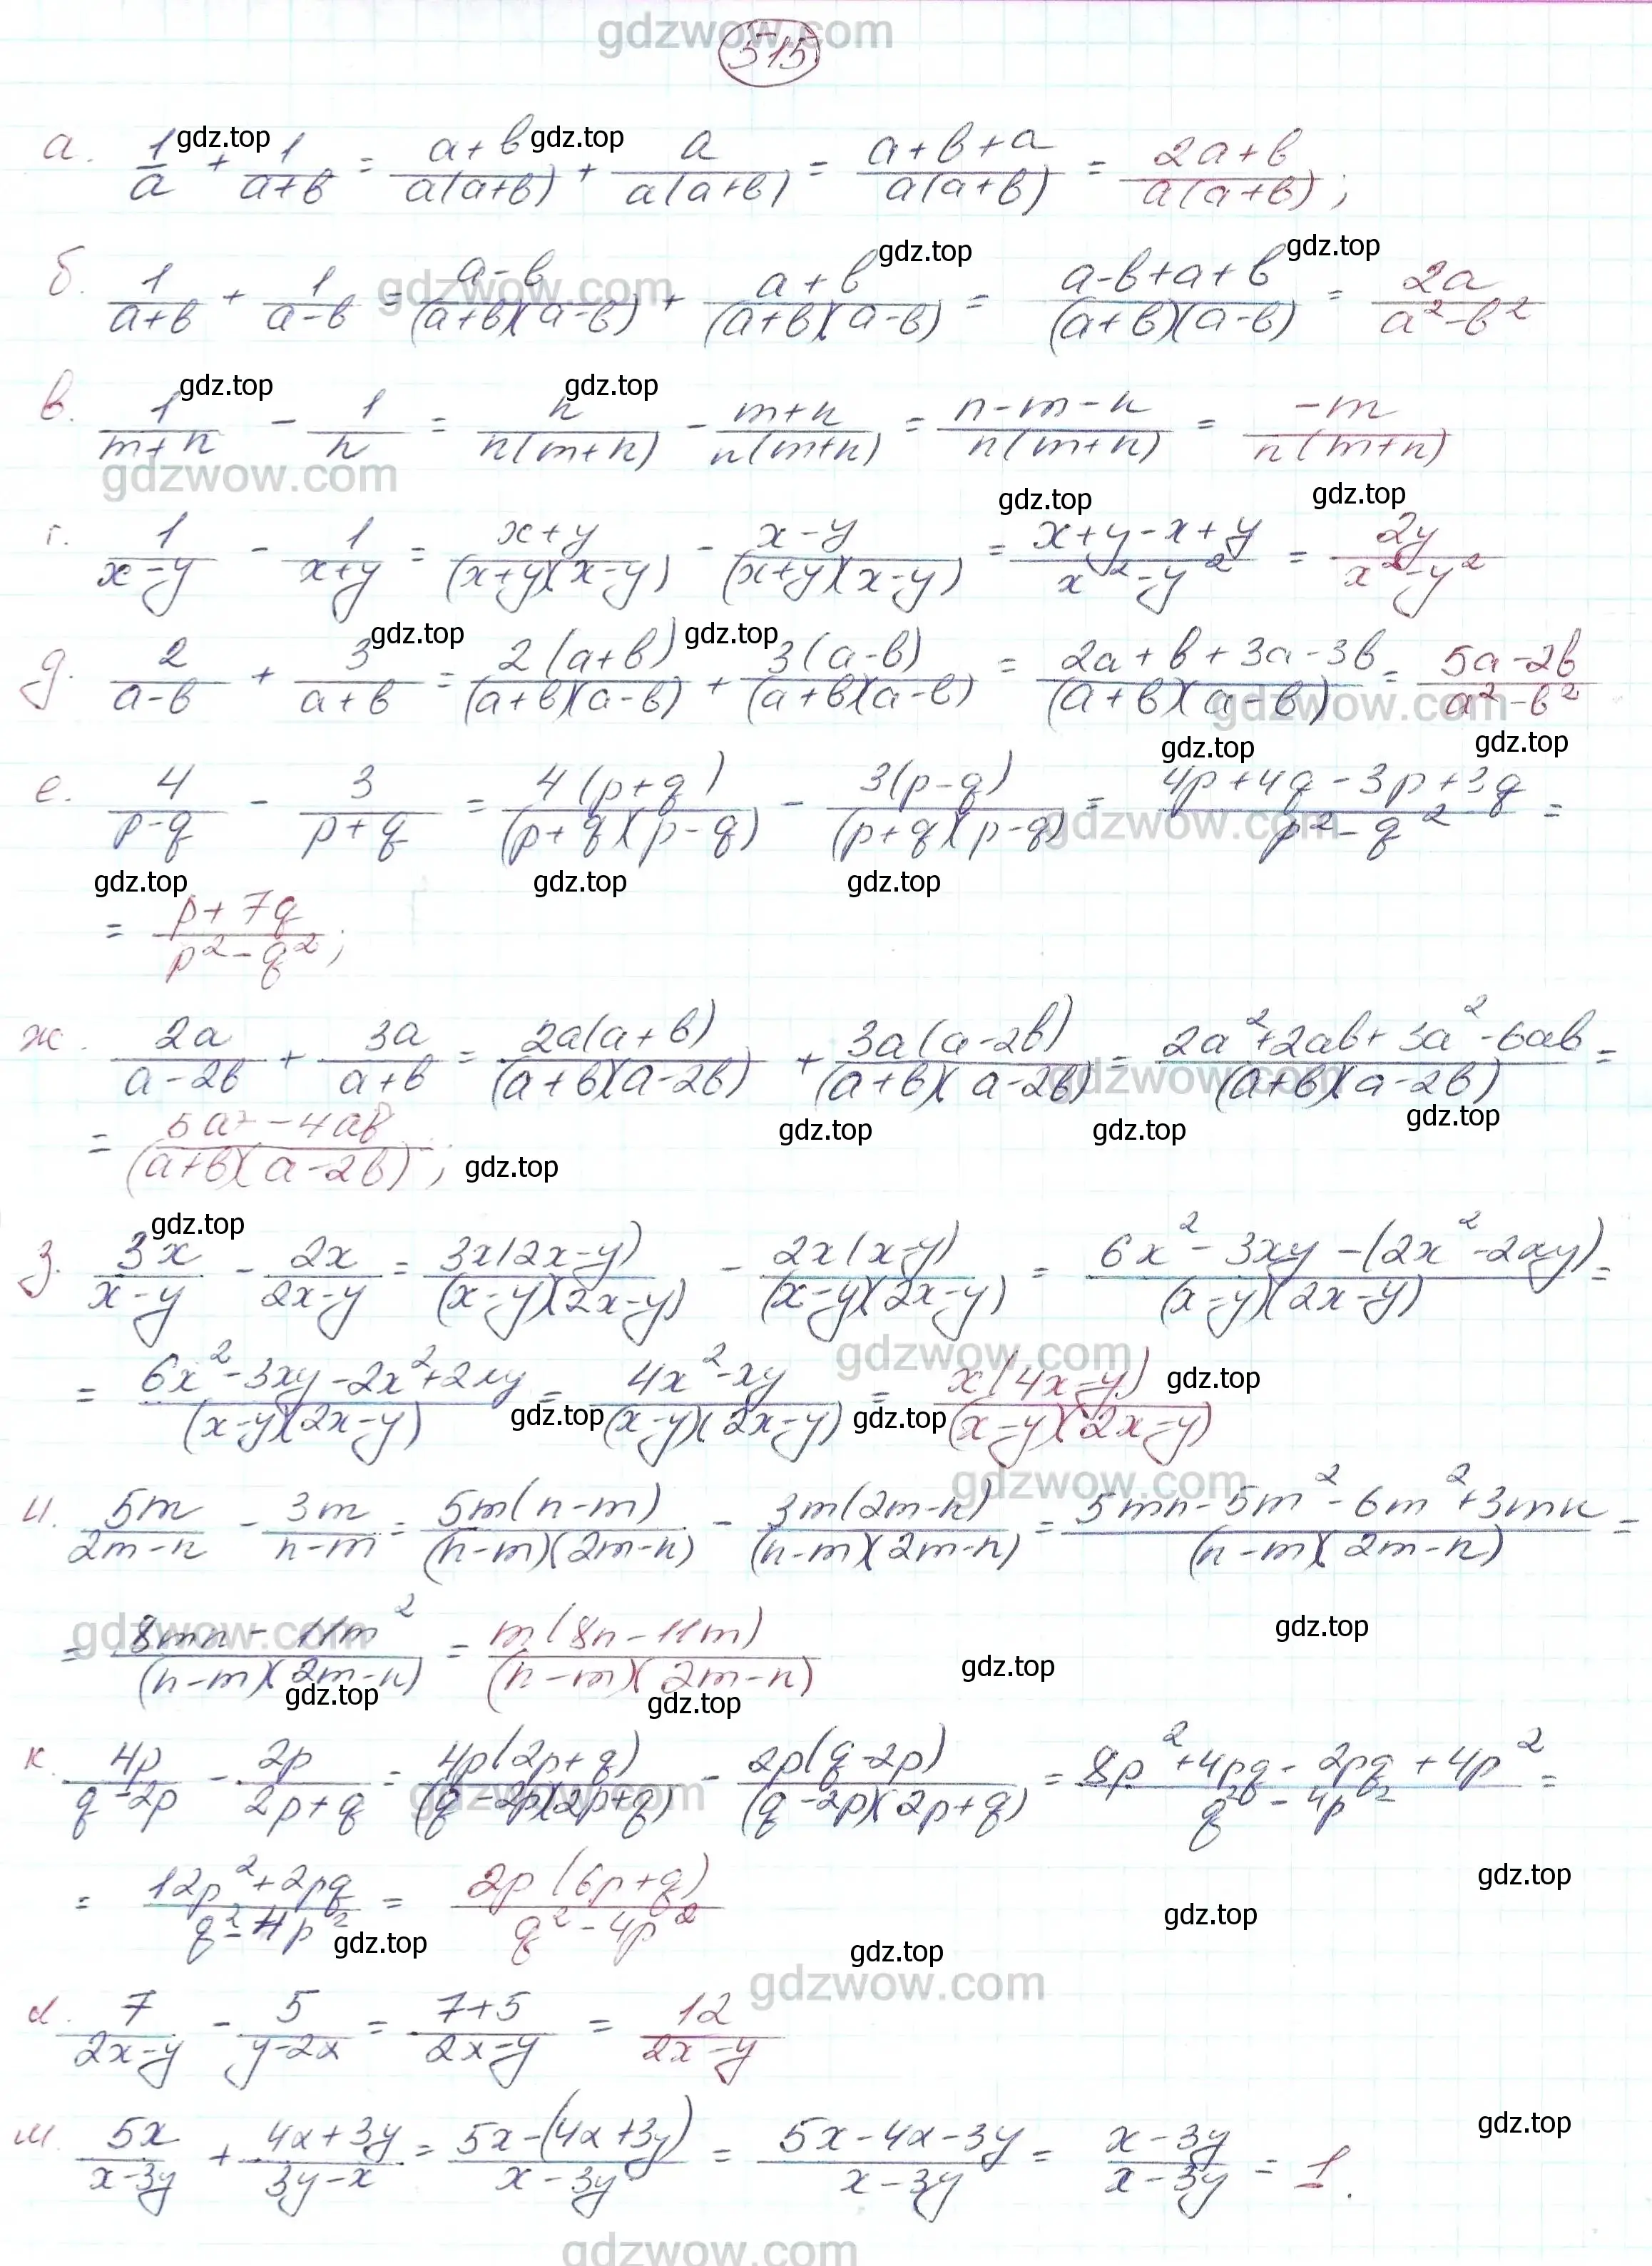 515
а. 1/a + 1/(a+b) = (a+b)/(a(a+b)) + a/(a(a+b)) = (a+b+a)/(a(a+b)) = (2a+b)/(a(a+b));
б. 1/(a+b) + 1/(a-b) = (a-b)/((a+b)(a-b)) + (a+b)/((a+b)(a-b)) = (a-b+a+b)/((a+b)(a-b)) = 2a/(a²-b²)
в. 1/(m+n) - 1/n = n/(n(m+n)) - (m+n)/(n(m+n)) = (n-m-n)/(n(m+n)) = -m/(n(m+n))
г. 1/(x-y) - 1/(x+y) = (x+y)/((x+y)(x-y)) - (x-y)/((x+y)(x-y)) = (x+y-x+y)/(x²-y²) = 2y/(x²-y²)
д. 2/(a-b) + 3/(a+b) = 2(a+b)/((a+b)(a-b)) + 3(a-b)/((a+b)(a-b)) = (2a+b+3a-3b)/((a+b)(a-b)) = (5a-2b)/(a²-b²)
е. 4/(p-q) - 3/(p+q) = 4(p+q)/((p+q)(p-q)) - 3(p-q)/((p+q)(p-q)) = (4p+4q-3p+3q)/(p²-q²) =
= (p+7q)/(p²-q²);
ж. 2a/(a-2b) + 3a/(a+b) = 2a(a+b)/((a+b)(a-2b)) + 3a(a-2b)/((a+b)(a-2b)) = (2a²+2ab+3a²-6ab)/((a+b)(a-2b)) =
= (5a²-4ab)/((a+b)(a-2b));
з. 3x/(x-y) - 2x/(2x-y) = 3x(2x-y)/((x-y)(2x-y)) - 2x(x-y)/((x-y)(2x-y)) = (6x²-3xy-(2x²-2xy))/((x-y)(2x-y)) =
= (6x²-3xy-2x²+2xy)/((x-y)(2x-y)) = (4x²-xy)/((x-y)(2x-y)) = x(4x-y)/((x-y)(2x-y))
и. 5m/(2m-n) - 3m/(n-m) = 5m(n-m)/((n-m)(2m-n)) - 3m(2m-n)/((n-m)(2m-n)) = (5mn-5m²-6m²+3mn)/((n-m)(2m-n)) =
= (8mn-11m²)/((n-m)(2m-n)) = m(8n-11m)/((n-m)(2m-n))
к. 4p/(q-2p) - 2p/(2p+q) = 4p(2p+q)/((q-2p)(2p+q)) - 2p(q-2p)/((q-2p)(2p+q)) = (8p²+4pq-2pq+4p²)/(q²-4p²) =
= (12p²+2pq)/(q²-4p²) = 2p(6p+q)/(q²-4p²)
л. 7/(2x-y) - 5/(y-2x) = (7+5)/(2x-y) = 12/(2x-y)
м. 5x/(x-3y) + (4x+3y)/(3y-x) = (5x-(4x+3y))/(x-3y) = (5x-4x-3y)/(x-3y) = (x-3y)/(x-3y) = 1.